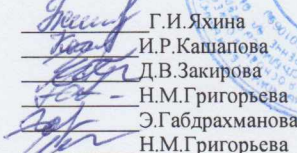 Г.И.Яхина
И.Р.Кашапова
Д.В.Закирова
Н.М.Григорьева
Э.Габдрахманова
Н.М.Григорьева